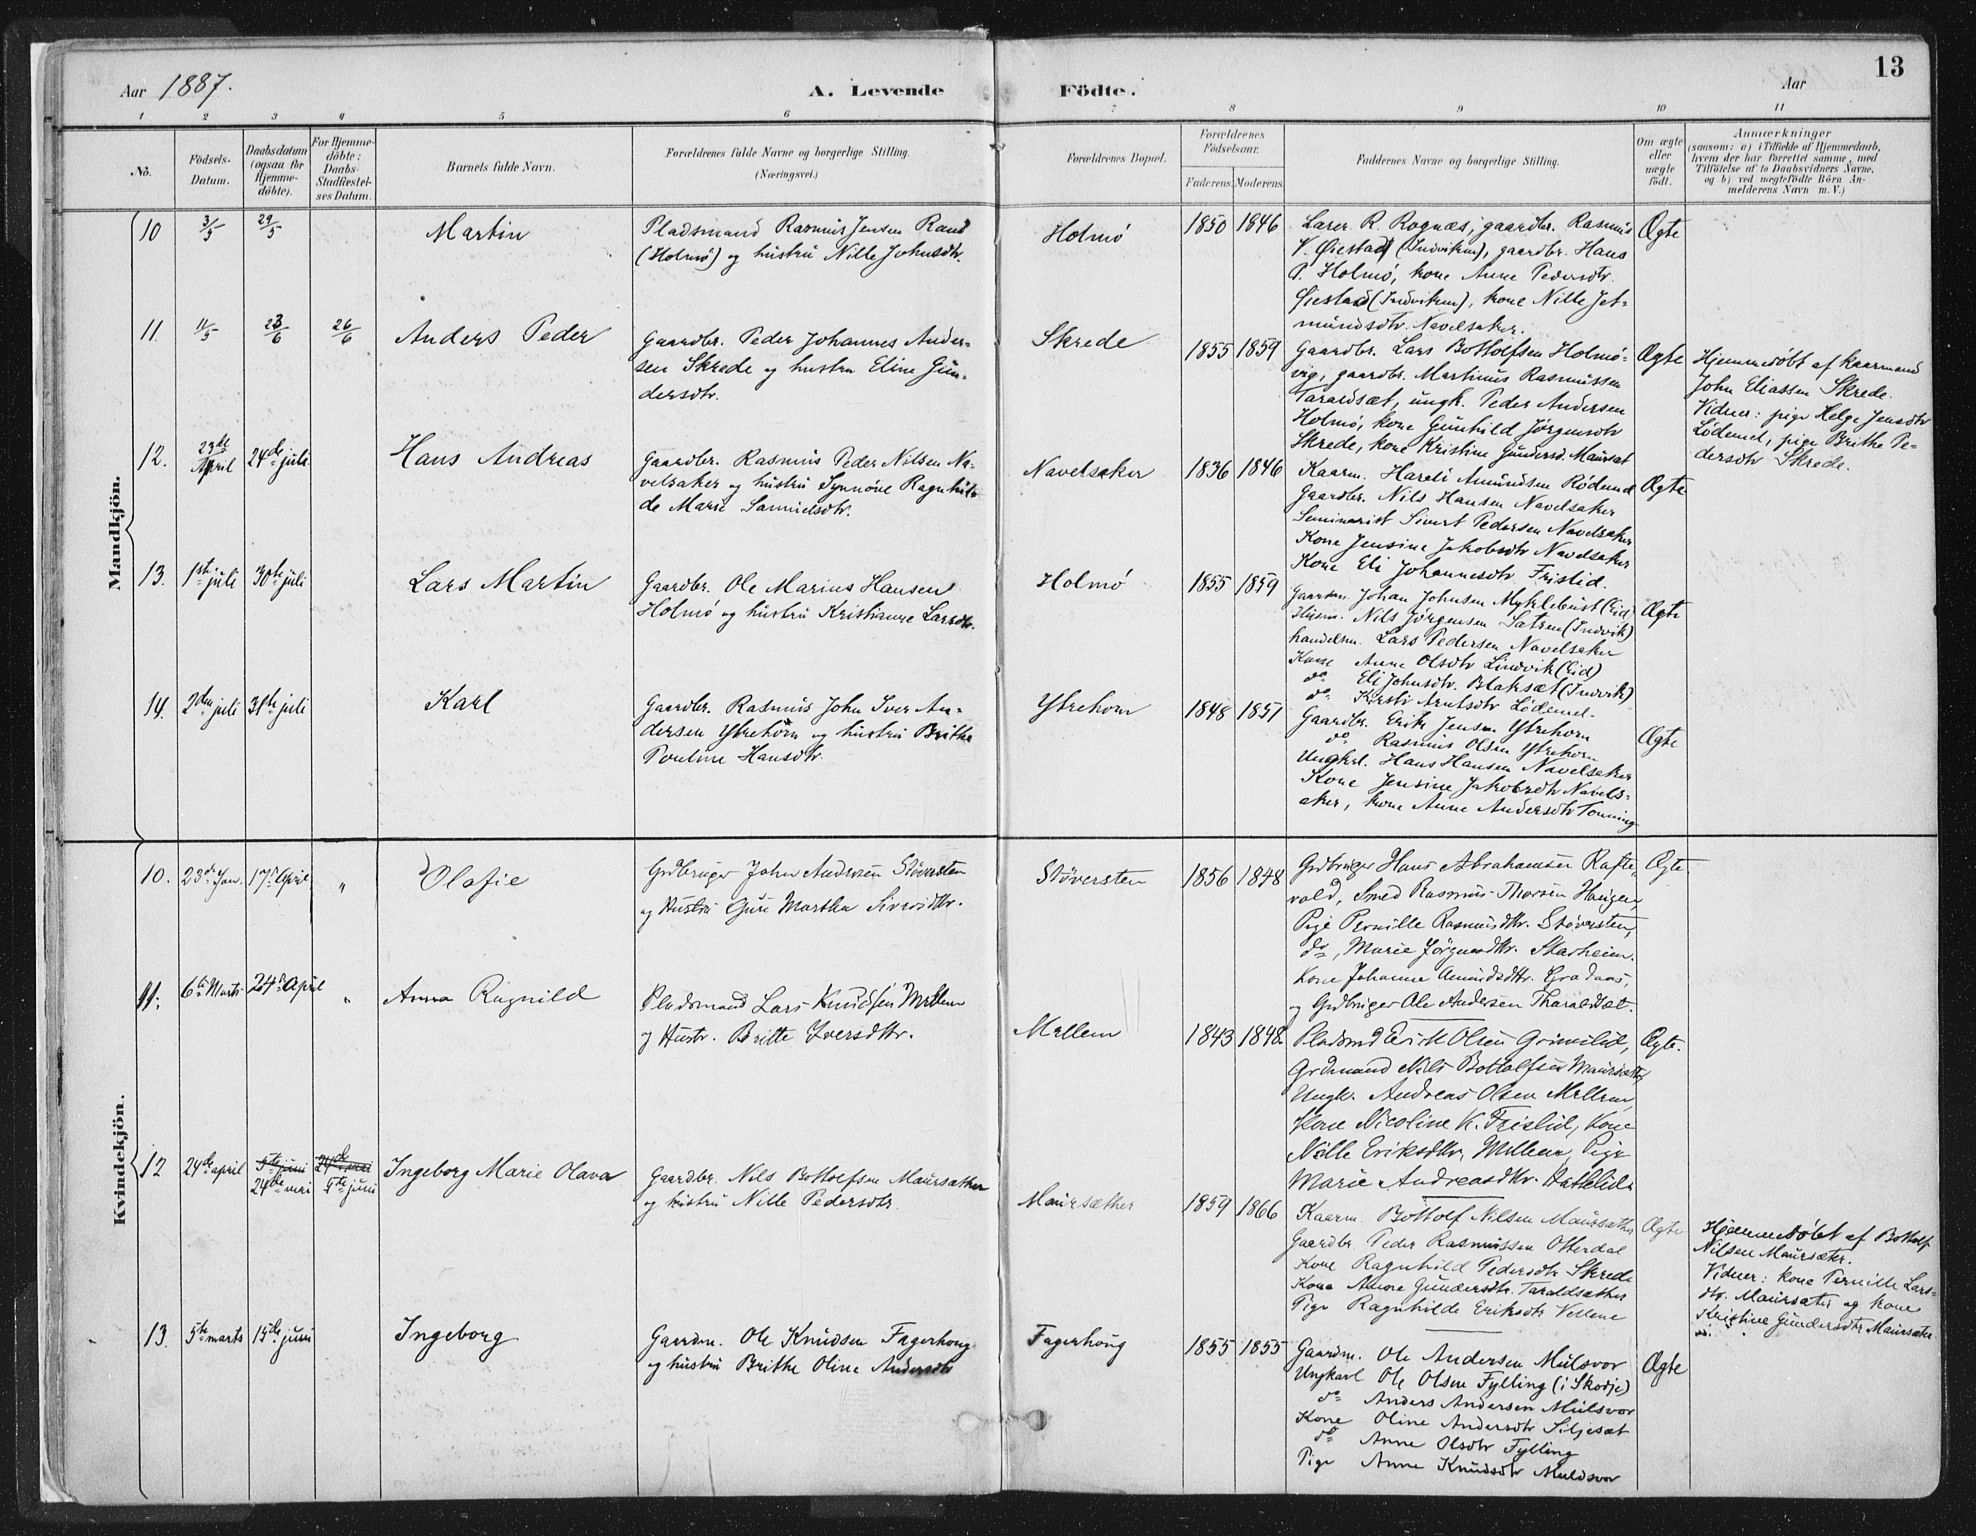 Aar 1887.
A. Levende Födte.
Aar
13
1 2 3 4 5 6 7 8 9 10 11
No.
Födsels-Datum.
Daabsdatum (ogsaa for Hjemme-döbte).
For Hjemme-döbte: Daabs-Stadfæstel-ses Datum.
Barnets fulde Navn.
Forældrenes fulde Navne og borgerlige Stilling.
(Næringsvei.)
Forældrenes Bopæl.
Forældrenes Födselsaar.
Faderens. Moderens.
Faddernes Navne og borgerlige Stilling.
Om ægte eller uægte födt.
Anmærkninger
(saasom: a) i Tilfælde af Hjemmedaab,
hvem der har forrettet samme, med
Tilföielse af to Daabsvidners Navne,
og b) ved uægtefödte Börn An-
melderens Navn m. V.)
Mandkjön.
10 3/5 29/5 Martin
Pladsmand Rasmus Jensen Rand
(Holmö) og hustru Nille Johnsdtr.
Holmö 1850 1846
Lærer R. Rognæs, gaardbr. Rasmus
V. Øiestad (Indviken), gaardbr. Hans
P. Holmö, kone Anne Pedersdtr.
Øiestad (Indviken), kone Nille Jet-
mundsdtr. Navelsaker.
Ægte
11. 11/5 23/6 26/6 Anders Peder
Gaardbr. Peder Johannes Ander-
sen Skrede og hustru Eline Gun-
dersdtr.
Skrede 1855 1859
Gaardbr. Lars Bottolfsen Holmö-
vig, gaardbr. Martinus Rasmussen
Taraldsæt, ungk. Peder Andersen
Holmö, kone Gunhild Jörgensdtr
Skrede, kone Kristine Gundersd. Maursæt
Ægte
Hjemmedöbt af kaarmand
John Eliassen Skrede.
Vidner: pige Helge Jensdtr
Lödemel, pige Brithe Pe-
dersdtr Skrede.
12. 23de April 24de juli Hans Andreas
Gaardbr. Rasmus Peder Nilsen Na-
velsaker og hustru Synnöve Ragnhil-
de Marie Samuelsdtr.
Navelsaker 1836 1846
Kaarm. Hareli Amundsen Rödmd
Gaardbr. Nils Hansen Navelsaker
Seminarist Sivert Pedersen Navelsaker
Kone Jensine Jakobsdtr Navelsaker
Kone Eli Johannesdtr Frislid.
Ægte
13. 1ste juli 30te juli Lars Martin
Gaardbr. Ole Marius Hansen
Holmö og hustru Kristianne Larsdtr.
Holmö 1855 1859
Gaardm. Johan Johnsen Myklebust (Eid)
Husm. Nils Jörgensen Sætren (Indvik)
handelsm. Lars Pedersen Navelsaker
Kone Anne Olsdtr Lindvik (Eid)
do Eli Johnsdtr. Blaksæt (Indvik)
do Kirsti Arntsdtr Lödemel.
Ægte
14. 2den juli 31te juli Karl
Gaardbr. Rasmus John Iver An-
dersen Ytrehorn og hustru Brithe
Pouline Hansdtr.
Ytrehorn 1848 1851
Gaardbr. Erik Jensen Ytrehorn
do Rasmus Olsen Ytrehorn
Ungkrl. Hans Hansen Navelsaker
Kone Jensine Jakobsdtr Navels-
aker, kone Anne Andersdtr Tonning
Ægte
Kvindekjön.
10. 23de Jan. 17de April " Olafie
Grdbruger John Andersen Stöversten
og Hustru Guri Martha Siversdtr.
Stöversten 1856 1848
Grdbruger Hans Abrahamsen Rafte-
vold, Smed Rasmus Thorsen Haugen,
Pige Pernille Rasmusdtr. Stöversten,
do, Marie Jörgensdtr. Skarheim.
Kone Johanne Amundsdtr. Gradaas,
og Grdbruger Ole Andersen Tharaldsæt.
Ægte
11. 6te Marts 24de April " Anna Ragnild
Pladsmand Lars Knudsen Mellem
og Hustr. Britte Iversdtr.
Mellem 1843 1848
Pladsmd Erik Olsen Grimelid,
Grdmand Nils Bottolfsen Maursæther,
Ungkr. Andreas Olsen Mellem,
Kone Nicoline K. Frislid, Kone
Nille Eriksdtr. Mellem, Pige
Marie Andreasdtr.
Ægte.
12 24de april 5te juni 24de mai 24de mai 5te juni Ingeborg Marie Olava
Gaardbr. Nils Bottolfsen Maursæther
og hustru Nille Pedersdtr.
Maursæther 1859 1866
Kaarm. Bottolf Nilsen Maursæther
Gaardbr. Peder Rasmussen Otterdal
Kone Ragnhild Pedersdtr Skrede
Kone Anne Gundersdtr. Taraldsæther
Pige Ragnhilde Eriksdtr Vellene
Ægte
Hjemmedöbt af Bottolf
Nilsen Maursæter.
Vidner: kone Pernille Lars-
dtr. Maursæter og kone
Kristine Gundersdtr Maursæter
13 5te marts 15de juni Ingeborg
Gaardm. Ole Knudsen Fagerhoug
og hustru Brithe Oline Andersdtr
Fagerhoug 1855 1855
Gaardm. Ole Andersen Mulsvor
Ungkarl Ole Olsen Fylling (i Skodje)
do Anders Andersen Mulsvor
Kone Oline Andersdtr Siljesæt
do Anne Olsdtr Fylling
Pige Anne Knudsdtr Muldsvor
Ægte